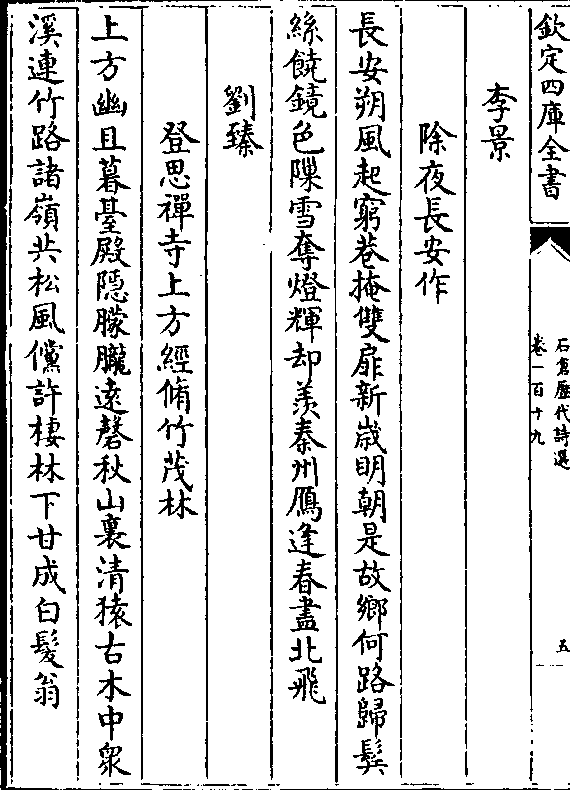 欽定四庫全書
石倉歷代詩選
卷一百十九
五
李景
除夜長安作
長安朔風起窮巷掩雙扉新歲明朝是故鄉何路歸鬂
絲饒鏡色隟雪奪燈輝却羨秦州鴈逢春盡北飛
劉臻
登思禪寺上方經脩竹茂林
上方幽且暮臺殿隱朦朧遠磬秋山裏清猿古木中衆
溪連竹路諸嶺共松風儻許棲林下甘成白髪翁